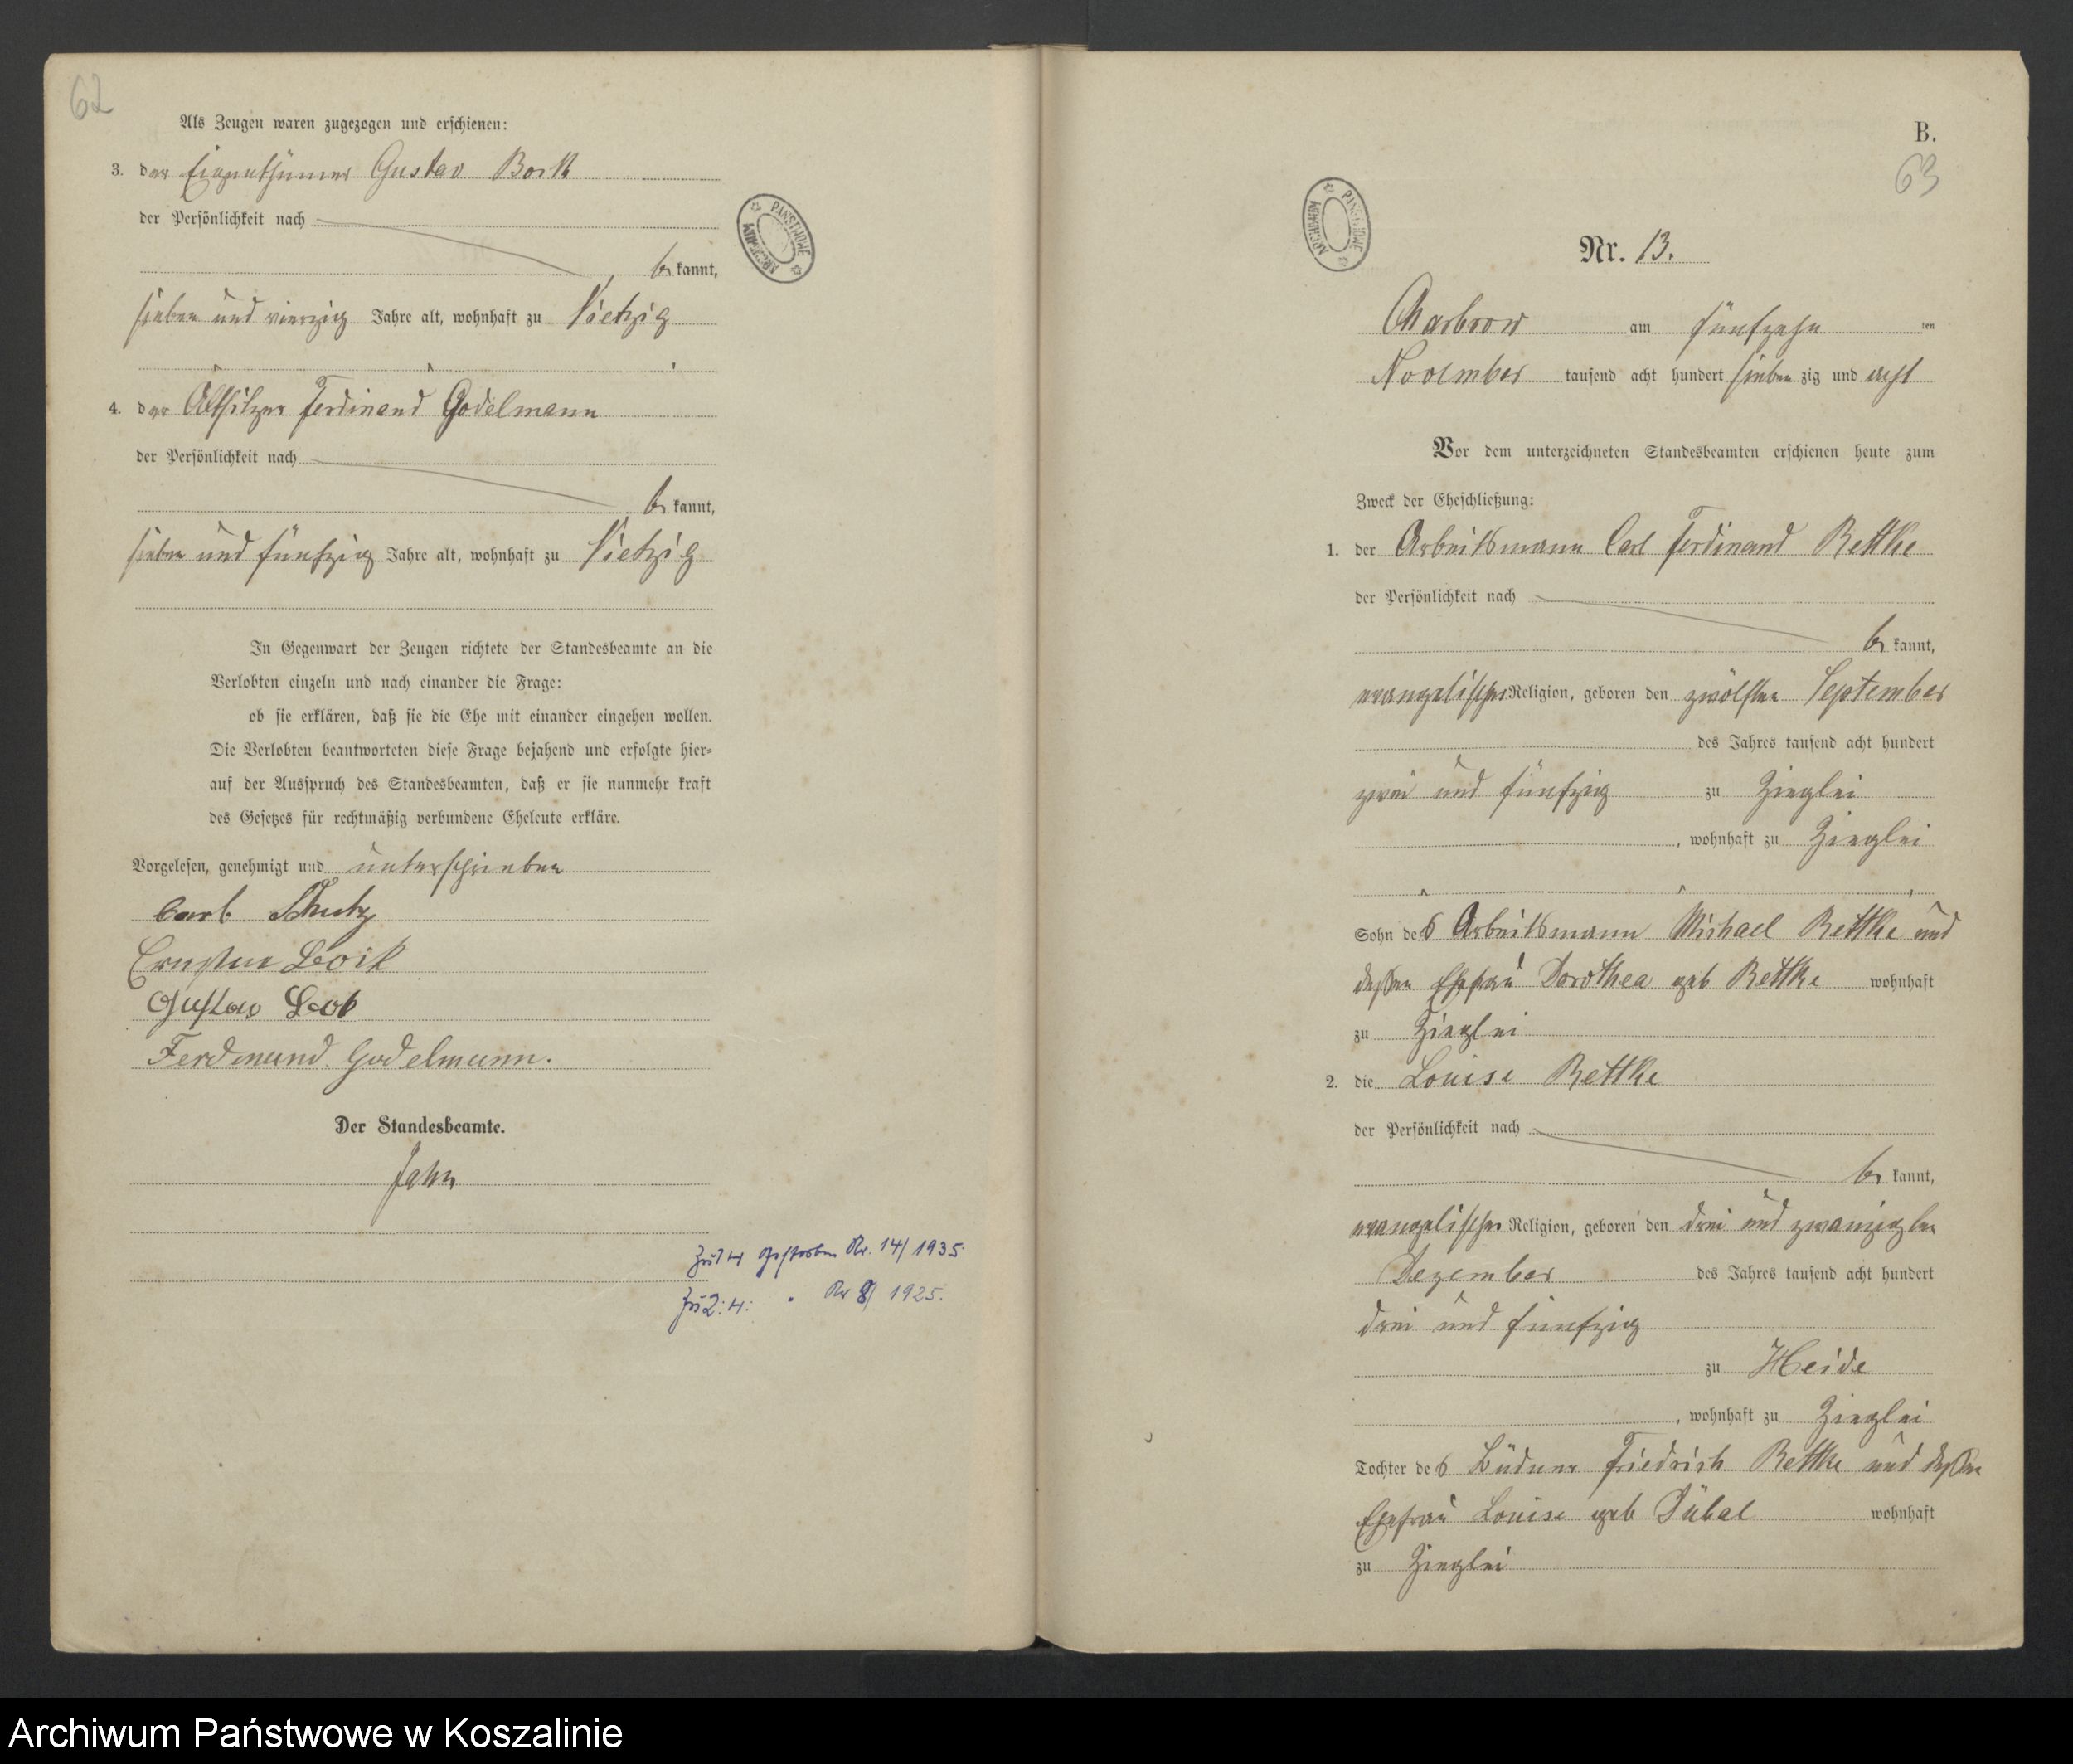 62
Als Zeugen waren zugezogen und erschienen:
3. der Eigenthümer Gustav Bork
der Persönlichkeit nach
be kannt,
sieben und vierzig Jahre alt, wohnhaft zu Vietzig
4. der Altsitzer Ferdinand Godelmann
der Persönlichkeit nach
be kannt,
sieben und fünfzig Jahre alt, wohnhaft zu Vietzig
In Gegenwart der Zeugen richtete der Standesbeamte an die
Verlobten einzeln und nach einander die Frage:
ob sie erklären, daß sie die Ehe mit einander eingehen wollen.
Die Verlobten beantworteten diese Frage bejahend und erfolgte hier-
auf der Ausspruch des Standesbeamten, daß er sie nunmehr kraft
des Gesetzes für rechtmäßig verbundene Eheleute erkläre.
Vorgelesen, genehmigt und unterschrieben
Carl
Gustav
Ferdinand Godelmann.
Der Standesbeamte.
Jahn
gestorben Nr. 14/1935.
Nr 8/1925.
PAŃSTWOWE ARCHIWUM
B.
63
PAŃSTWOWE ARCHIWUM
Nr. 13.
Charbrow am fünfzehn ten
November tausend acht hundert sieben zig und acht
Vor dem unterzeichneten Standesbeamten erschienen heute zum
Zweck der Eheschließung:
1. der Arbeitsmann Carl Ferdinand Rettke
der Persönlichkeit nach
be kannt,
evangelischer Religion, geboren den zwölften September
des Jahres tausend acht hundert
zwei und fünfzig zu Zieglei
, wohnhaft zu Zieglei
Sohn des Arbeitsmann Michael Rettke und
dessen Ehefrau Dorothea geb Rettke wohnhaft
zu Zieglei
2. die Louise Rettke
der Persönlichkeit nach
be kannt,
evangelischer Religion, geboren den drei und zwanzigsten
Dezember des Jahres tausend acht hundert
drei und fünfzig
zu Heide
, wohnhaft zu Zieglei
Tochter des Büdner Friedrich Rettke und dessen
Ehefrau Louise geb Dübal wohnhaft
zu Zieglei
Archiwum Państwowe w Koszalinie